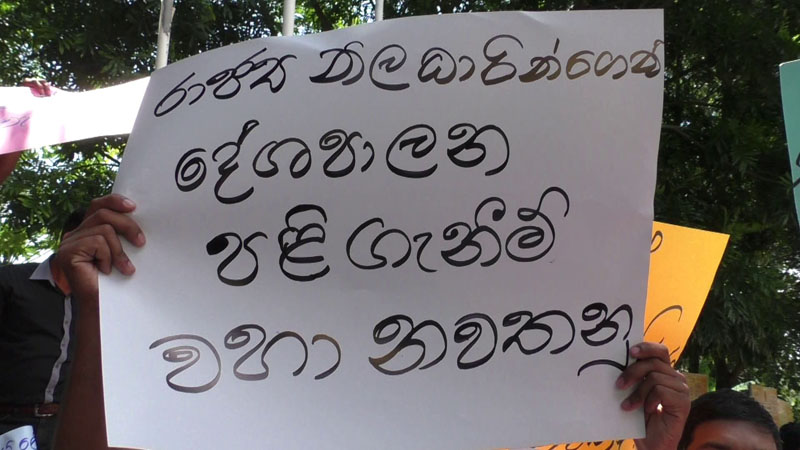 රාජ්‍ය නිලධාරින්ගෙන්
දේශපාලන
පළිගැනීම්
වහා නවතනු